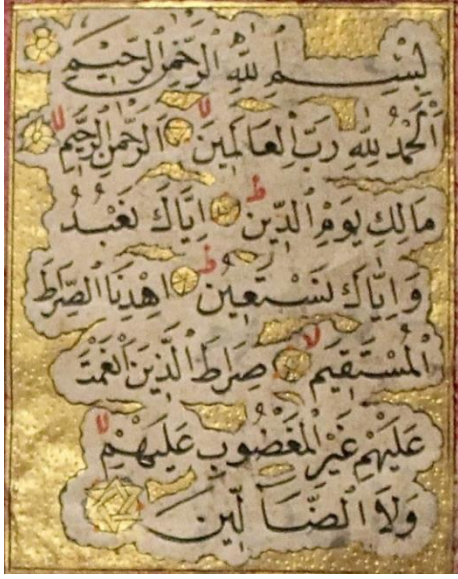 بِسْمِ اللهِ الرَّحْمٰنِ الرَّحِيمِ
اَلْحَمْدُ لِلّٰهِ رَبِّ الْعَالَمِينَ لا اَلرَّحْمٰنِ الرَّحِيمِ لا
مَالِكِ يَوْمِ الدِّينِ ط اِيَّاكَ نَعْبُدُ
وَاِيَّاكَ نَسْتَعِينُ ط اِهْدِنَا الصِّرَاطَ
الْمُسْتَقِيمَ لا صِرَاطَ الَّذِينَ اَنْعَمْتَ
عَلَيْهِمْ غَيْرِ الْمَغْضُوبِ عَلَيْهِمْ لا
وَلَا الضَّالِّينَ